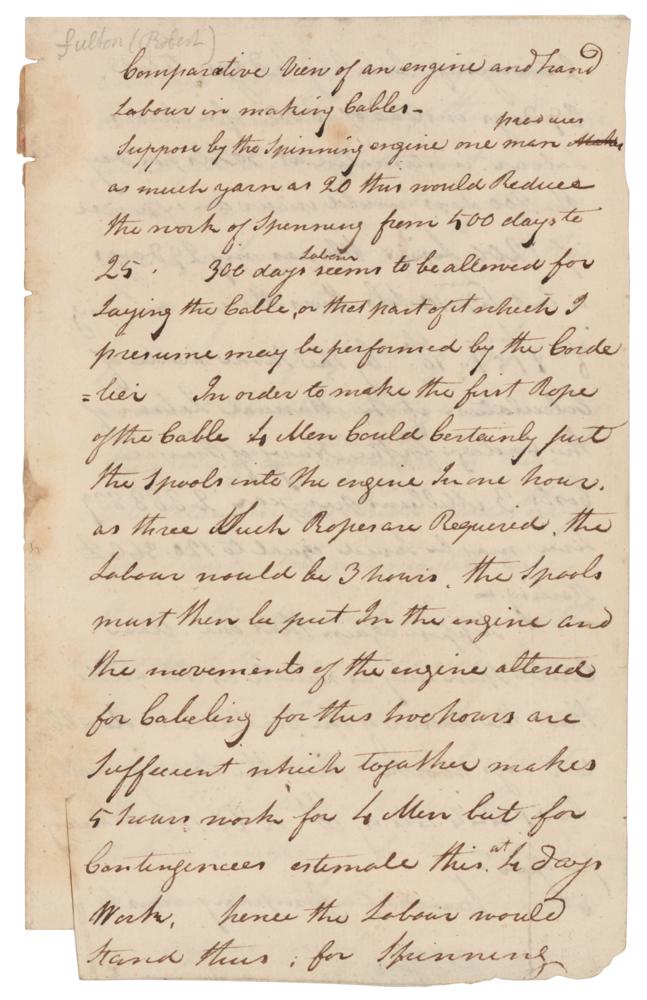 fulton (Robert)
Comparative View of an engine and hand
Labour in making Cables -
produces
Suppose by the Spinning engine one man Makes
as much yarn as 20 this would Reduce
the work of Spinning from 500 days to
25 . 300 days Labour seems to be allowed for
Laying the Cable, or that part of it which I
presume may be performed by the Corde
=lier In order to make the first Rope
of the Cable 4 Men Could Certainly put
the Spools into the engine In one hour.
as three Such Ropes are Required, the
Labour would be 3 hours, the Spools
must then be put In the engine and
the movements of the engine altered
for Cabeling for this two hours are
Sufficient which togather makes
5 hours work for 4 Men but for
Contingencees estimate this at 4 days
Work, hence the Labour would
Stand thus ; for Spinning